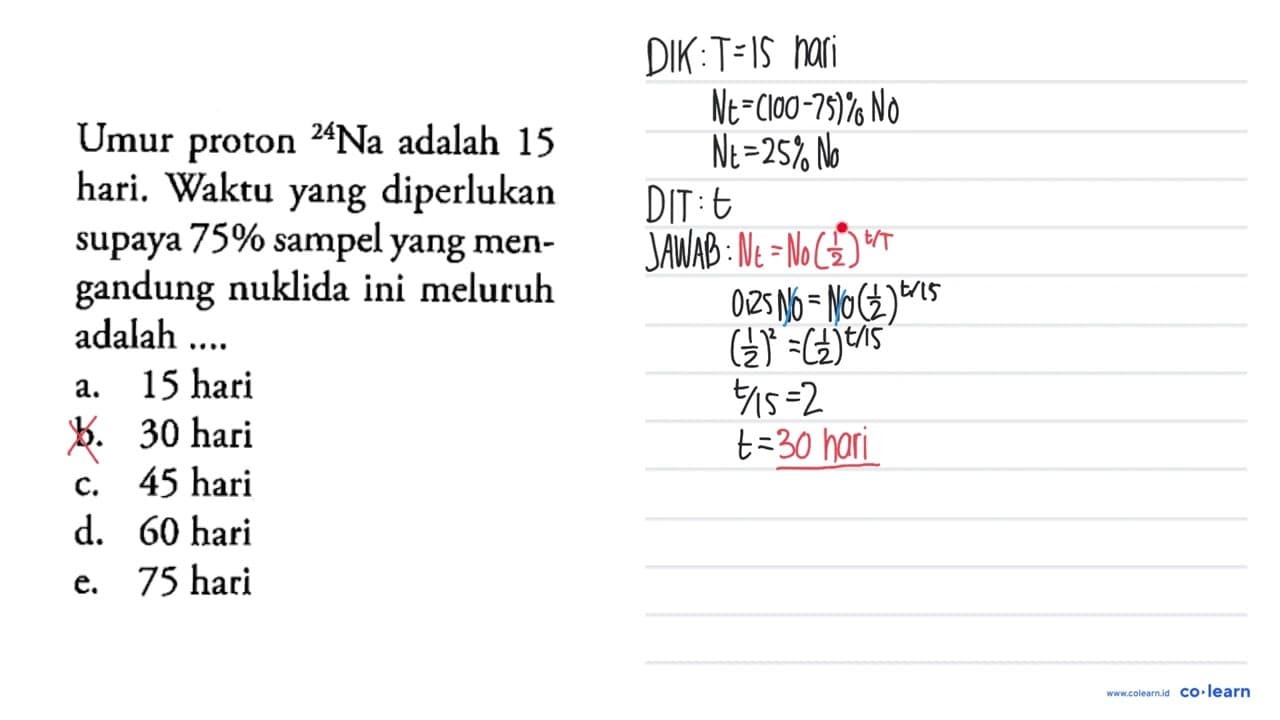 Umur proton ²⁴Na adalah 15
hari. Waktu yang diperlukan
supaya 75% sampel yang men-
gandung nuklida ini meluruh
adalah ....
a. 15 hari
b. 30 hari
c. 45 hari
d. 60 hari
e. 75 hari
DIK : T = 15 hari
Nt = (100-75)% No
Nt = 25% No
DIT : t
JAWAB : Nt = No(1/2)^t/T
0,25 No = No(1/2)^t/15
(1/2)² = (1/2)^t/15
t/15 = 2
t = 30 hari
www.colearn.id co·learn